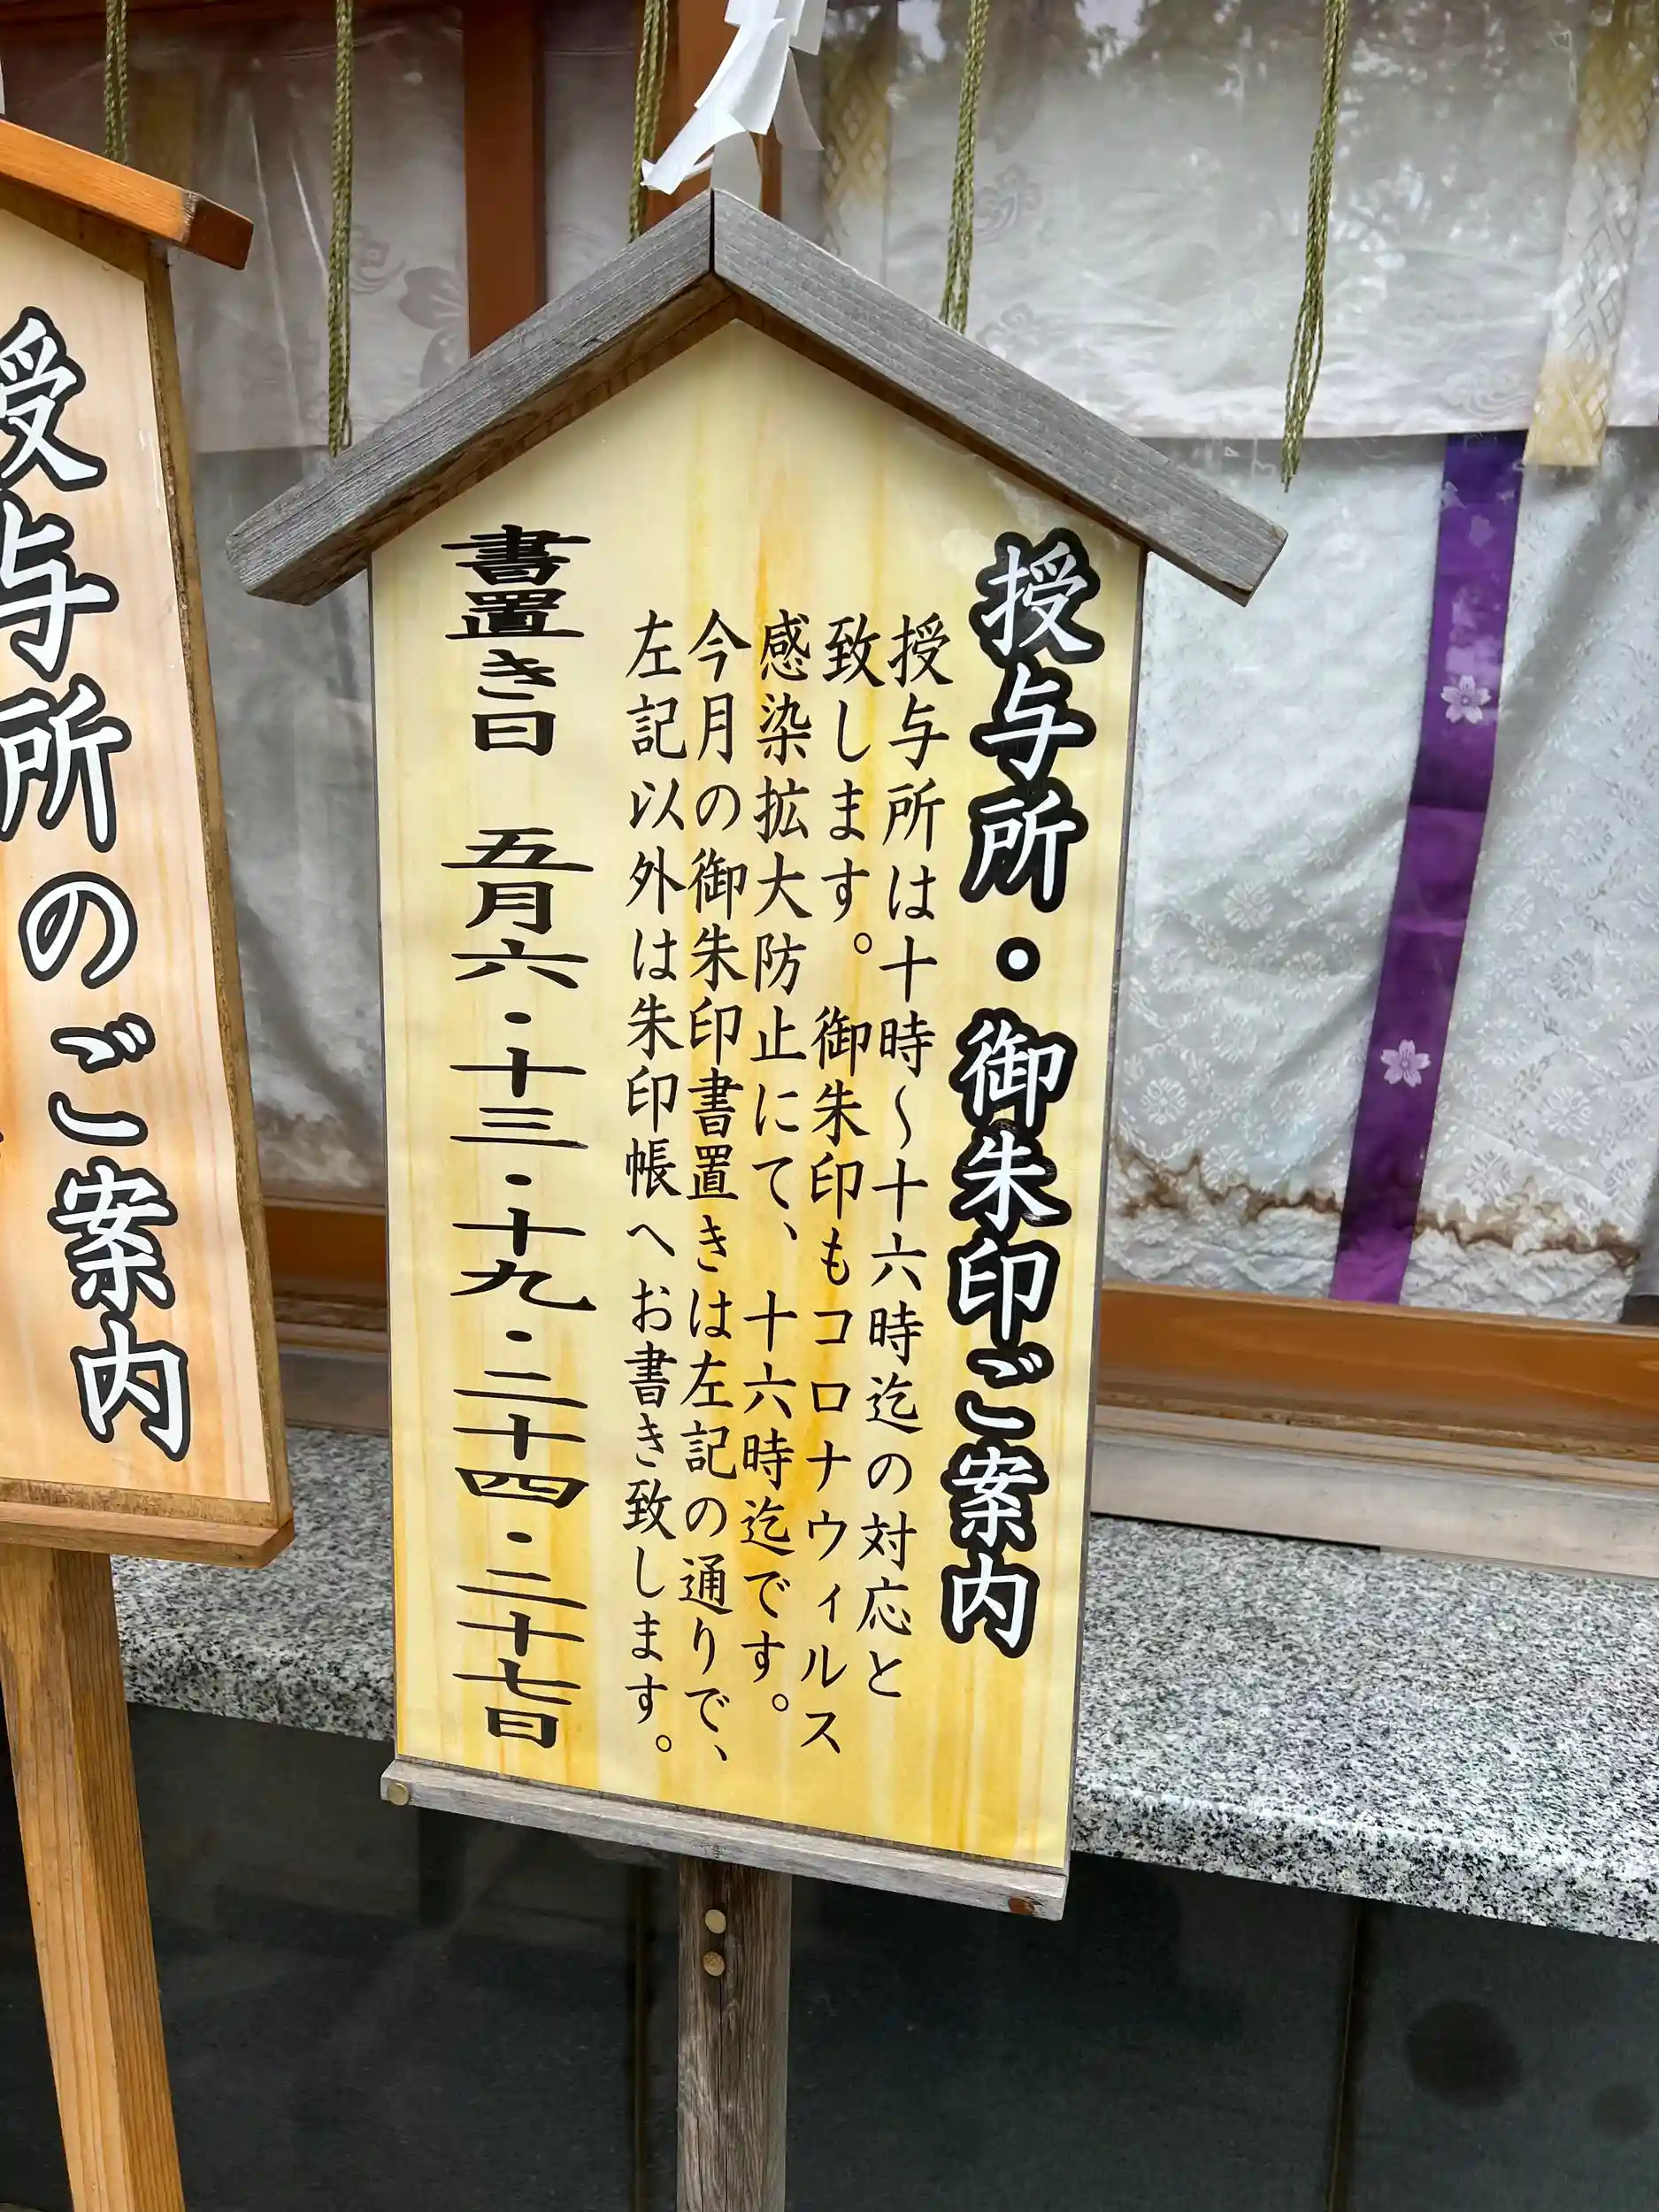 授与所・御朱印ご案内
授与所は十時〜十六時迄の対応と
致します。 御朱印もコロナウィルス
感染拡大防止にて、 十六時迄です。
今月の御朱印書置きは左記の通りで、
左記以外は朱印帳へお書き致します。
書置き日 五月六・十三・十九・二十四・二十七日
授与所のご案内